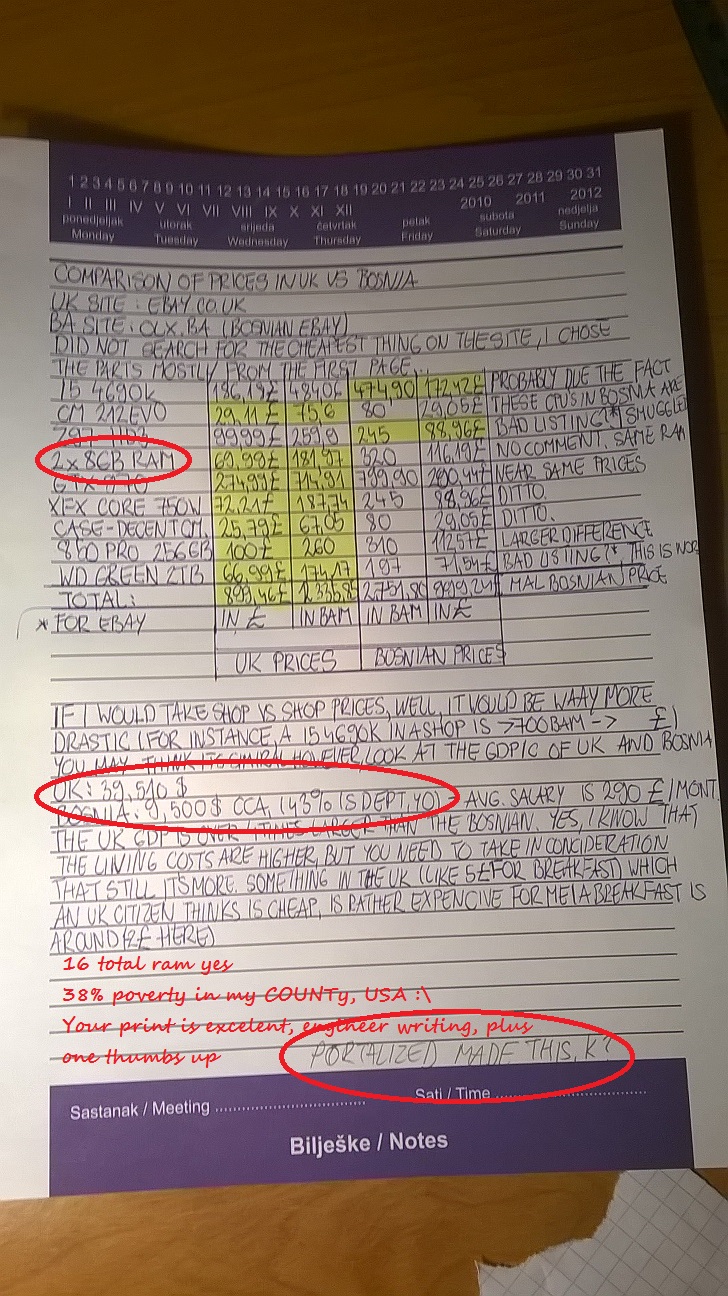 1 2 3 4 5 6 7 8 9 10 11 12 13 14 15 16 17 18 19 20 21 22 23 24 25 26 27 28 29 30 31
I II III IV V VI VII VIII IX X XI XII 2010 2011 2012
ponedjeljak utorak srijeda četvrtak petak subota nedjelja
Monday Tuesday Wednesday Thursday Friday Saturday Sunday
COMPARISON OF PRICES IN UK VS BOSNIA
UK SITE: EBAY.CO.UK
BA SITE: OLX.BA (BOSNIAN EBAY)
DID NOT SEARCH FOR THE CHEAPEST THING ON THE SITE, I CHOSE
THE PARTS MOSTLY FROM THE FIRST PAGE...
I5 4690K 186,18£ 484,06 474,90 172,42£ PROBABLY DUE THE FACT
CM 212 EVO 29,11£ 75,6 80 29,05£ THESE CPUS IN BOSNIA ARE
99,99£ 259,9 245 88,96£ BAD LISTING?* SMUGGLED
2x8GB RAM 69,99£ 181,97 320 116,19£ NO COMMENT, SAME RAM
GTX 970 274,99£ 714,91 799,90 290,44£ NEAR SAME PRICES
XFX CORE 750W 72,21£ 187,74 245 88,96£ DITTO.
CASE-DECENT CM 25,79£ 67,05 80 29,05£ DITTO.
850 PRO 256GB 100£ 260 310 112,57£ LARGER DIFFERENCE
WD GREEN 2TB 66,99£ 174,17 197 71,54£ BAD LISTING?*, THIS IS NOR
TOTAL: 899,46£ 2.335,8 2.751,80 999,24£ MAL BOSNIAN PRICE
* FOR EBAY IN £ IN BAM IN BAM IN £
UK PRICES BOSNIAN PRICES
IF I WOULD TAKE SHOP VS SHOP PRICES, WELL, IT WOULD BE WAAY MORE
DRASTIC (FOR INSTANCE, A I5 4690K IN A SHOP IS >700BAM -> £)
YOU MAY THINK ITS SIMIRAL HOWEVER, LOOK AT THE GDPIC OF UK AND BOSNIA
UK: 39,510 $
BOSNIA: 9,500$ CCA, (43% IS DEPT, YO) AVG. SALARY IS 290 £/MONT
THE UK GDP IS OVER 4 TIMES LARGER THAN THE BOSNIAN. YES, I KNOW THAT
THE LIVING COSTS ARE HIGHER, BUT YOU NEED TO TAKE IN CONCIDERATION
THAT STILL ITS MORE. SOMETHING IN THE UK (LIKE 5£ FOR BREAKFAST) WHICH
AN UK CITIZEN THINKS IS CHEAP, IS RATHER EXPENCIVE FOR ME (A BREAKFAST IS
AROUND 2£ HERE)
16 total ram yes
38% poverty in my COUNTy, USA :\
Your print is excelent, engineer writing, plus
one thumbs up
PORTALIZED MADE THIS, K?
Sastanak / Meeting Sati / Time
Bilješke / Notes